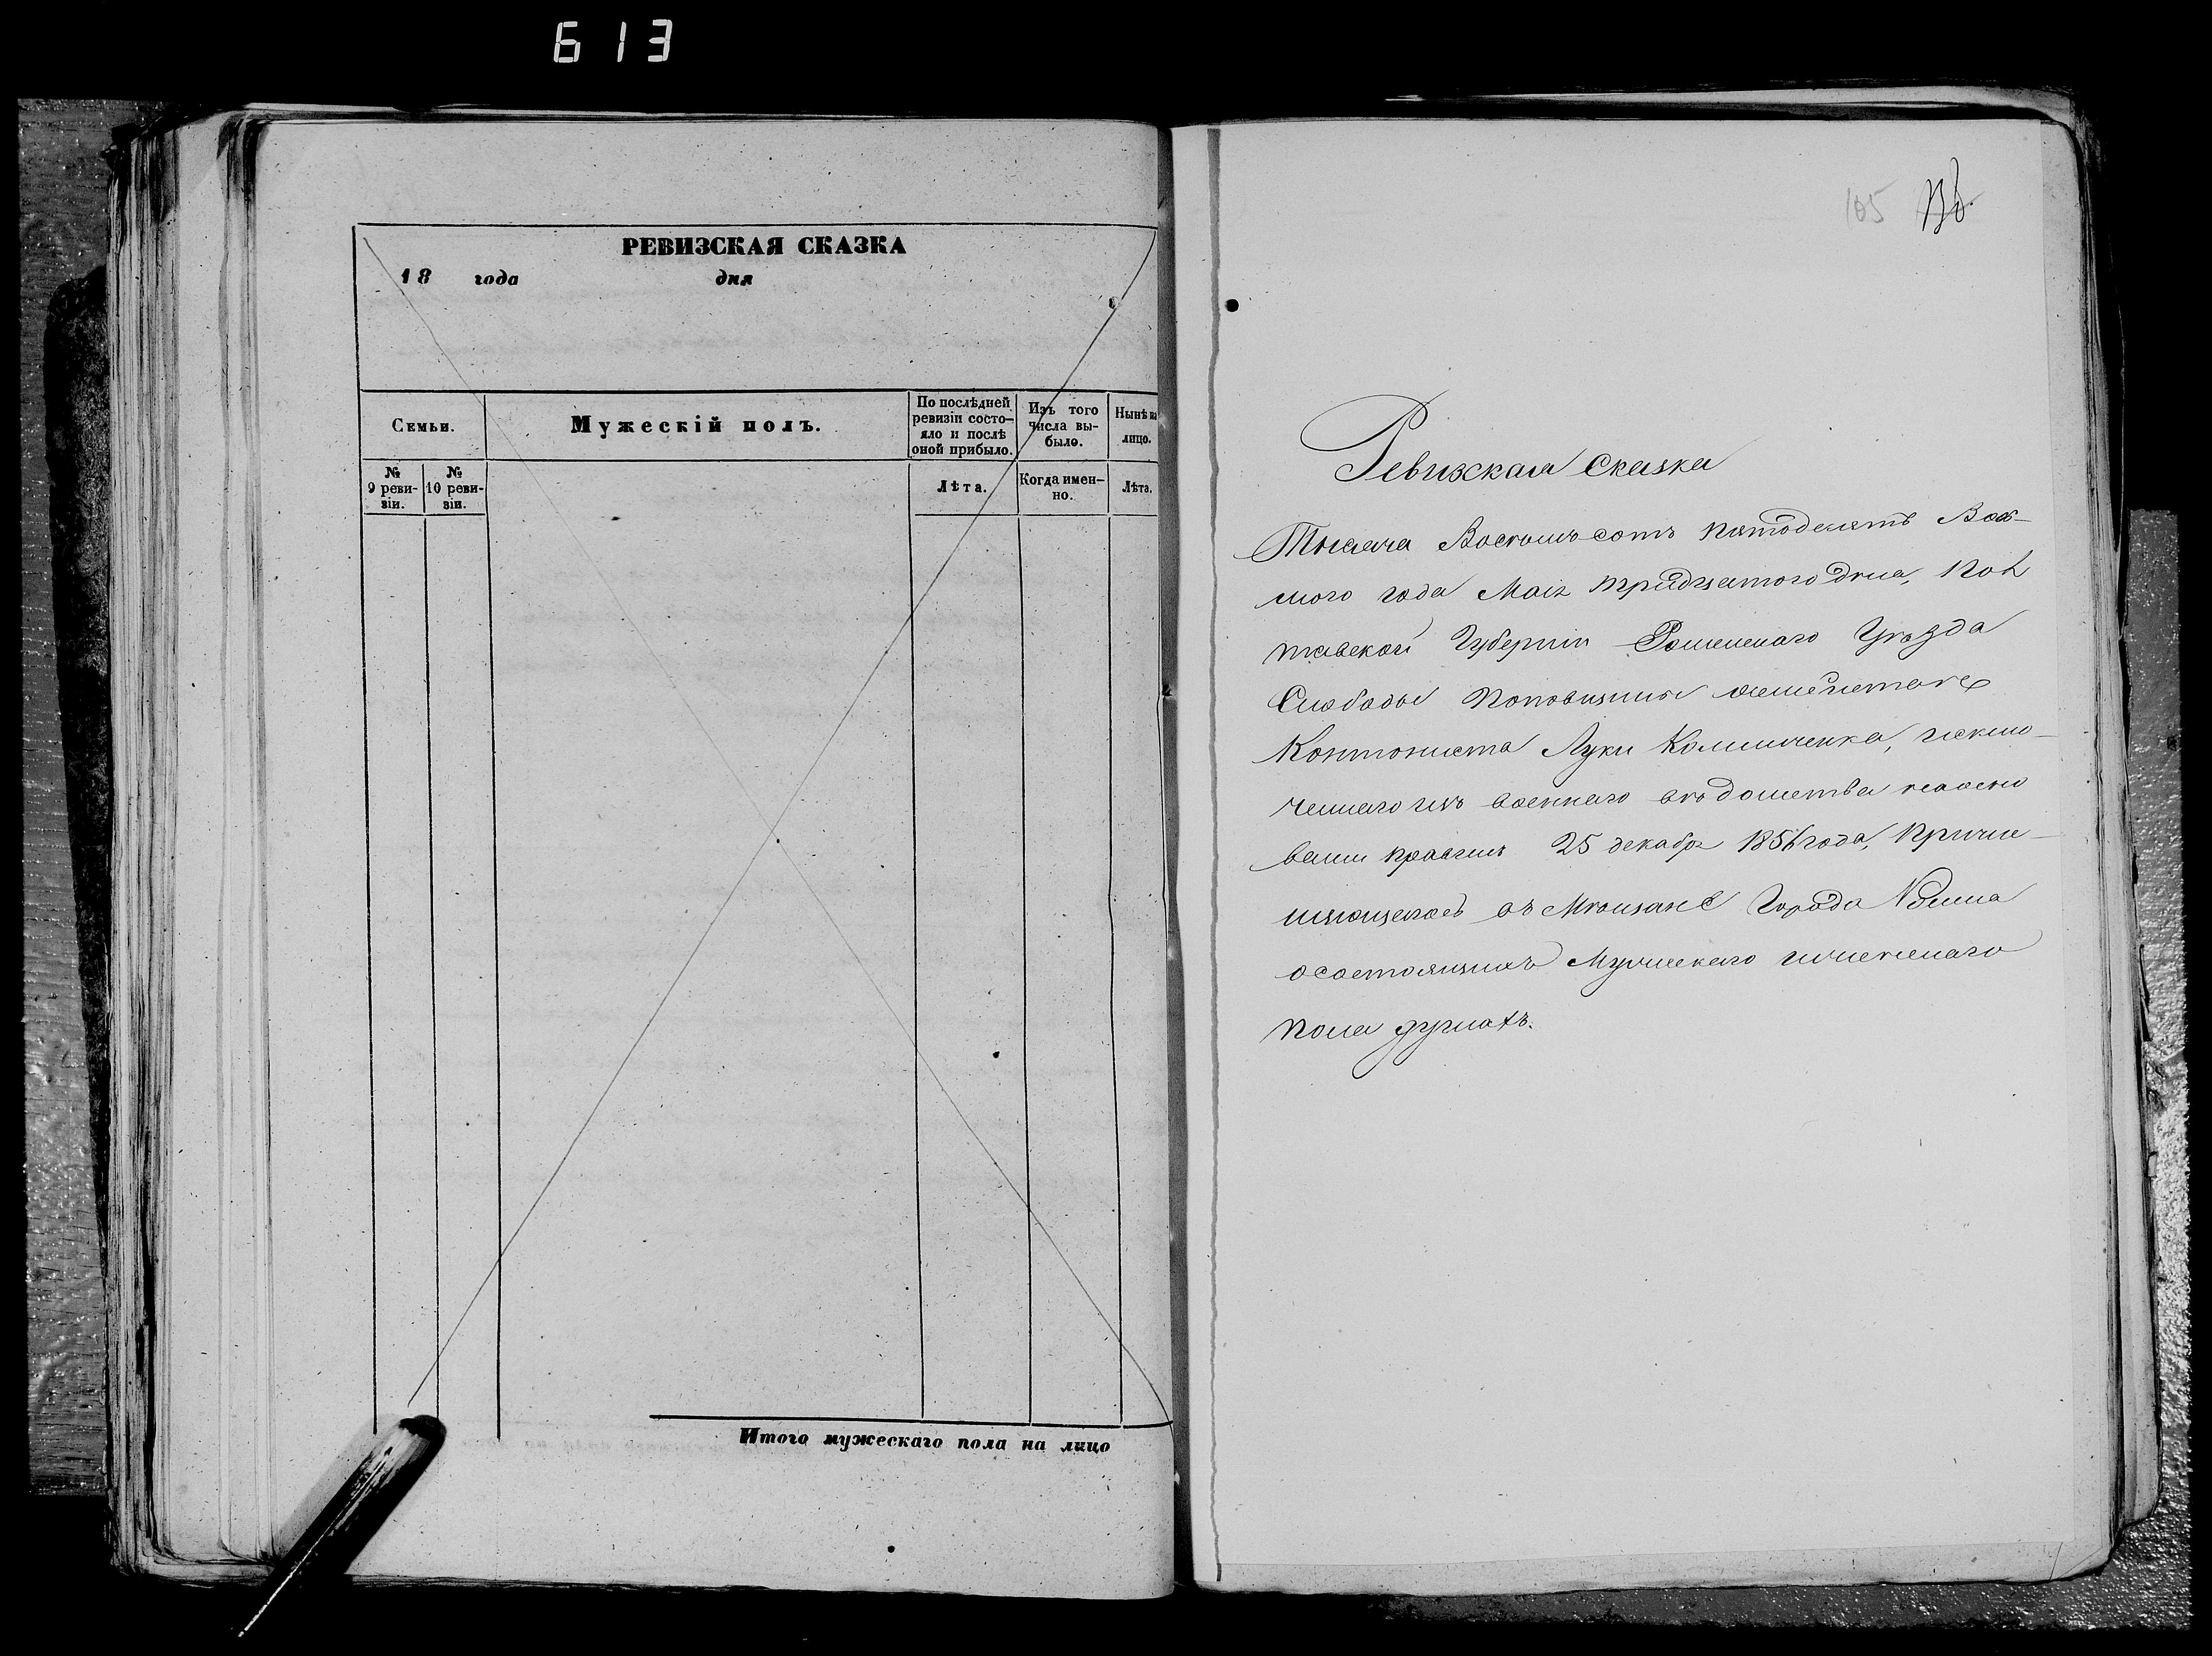 613
РЕВИЗСКАЯ СКАЗКА
18 года дня
Семьи.
Мужескій полъ.
По послѣдней
ревизіи состо-
яло и послѣ
оной прибыло.
Изъ того
числа вы-
было.
Нынѣ на
лицо.
№
9 реви-
зіи.
№
10 реви-
зіи.
Лѣта.
Когда имен-
но.
Лѣта.
Итого мужескаго пола на лицо
105
Ревизская Сказка
Тысяча Восемьсотъ пятьдесятъ Вось-
мого года Маія тридцатого дня, Пол
тавской Губерніи Роменскаго Уѣзда
Слободы Поповщины
Кантониста Луки Калиниченка, исклю-
ченнаго изъ военнаго вѣдомства на осно
ваніи правилъ 25 декабря 1856 года, причис-
ляющегося въ Мѣщане Города Ромна
о состоящихъ Мужескаго и женскаго
пола душахъ.